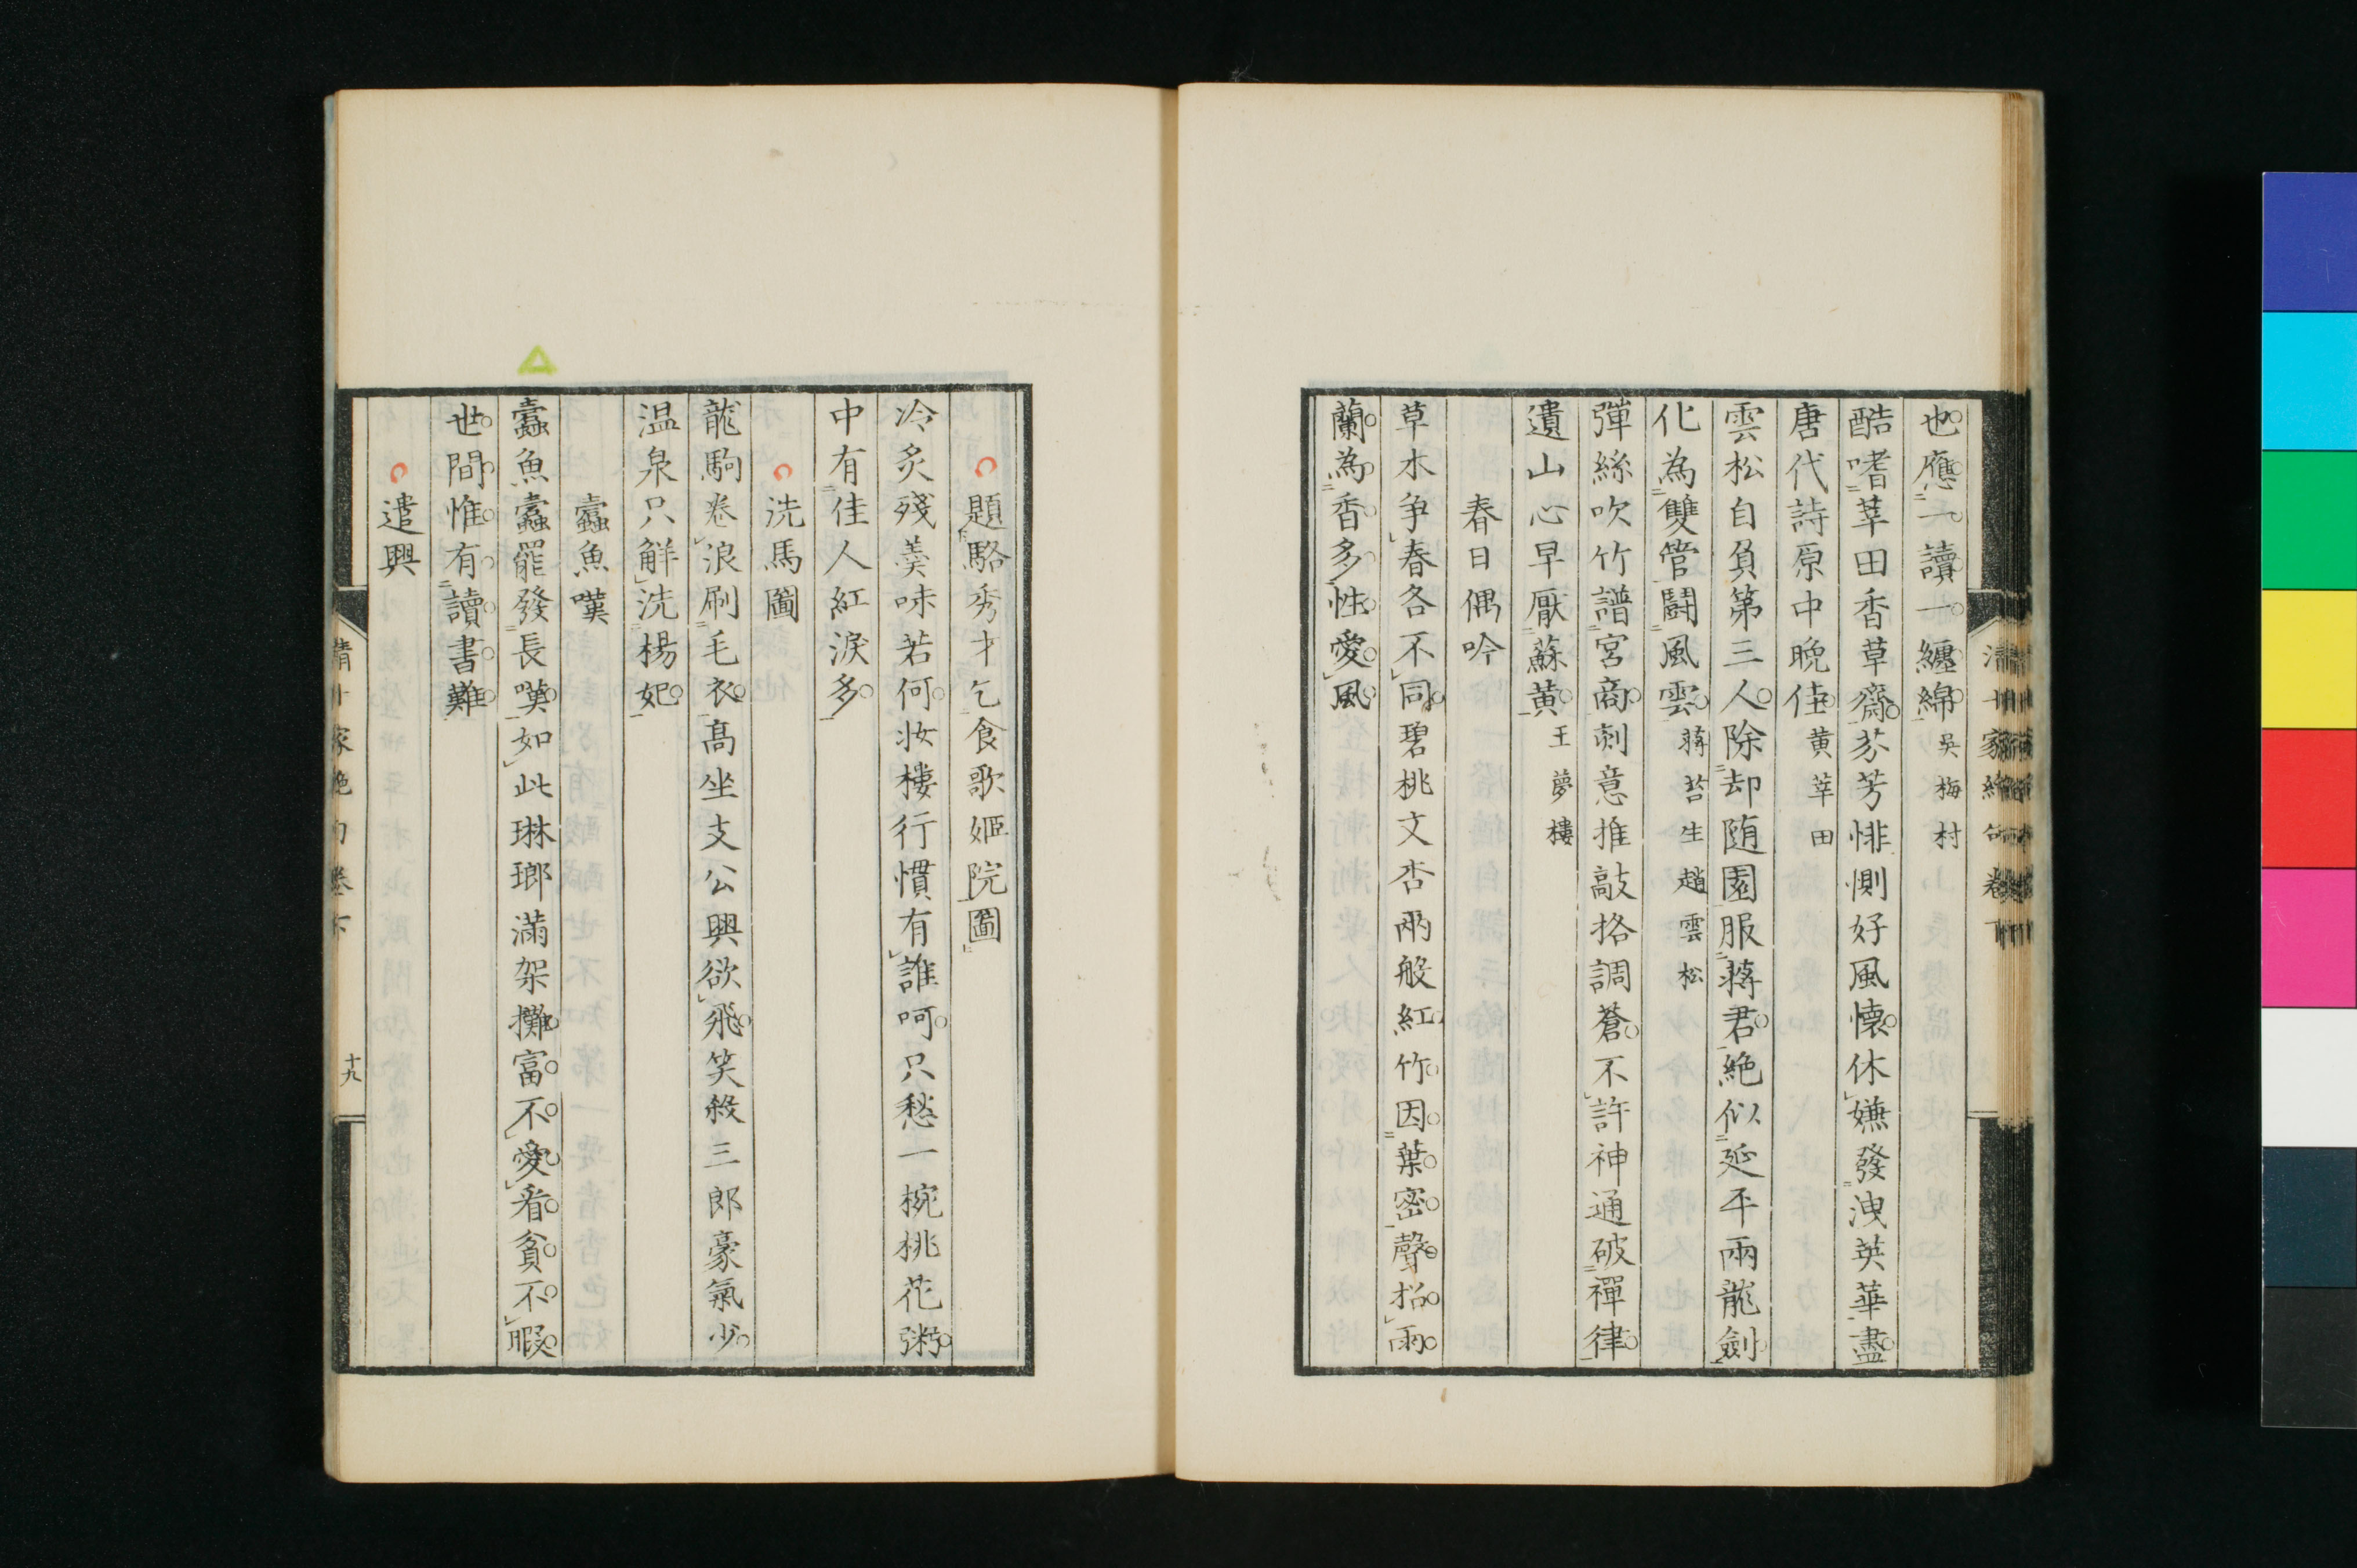 也應一讀一纏綿吳梅村
酷嗜莘田香草齋芬芳悱惻好風懷休嫌發洩英華盡
唐代詩原中晚佳黄莘田
雲松自負第三人除却随園服蔣君絶似延平兩龍劍
化為雙管鬪風雲蔣苕生趙雲松
彈絲吹竹譜宮商刻意推敲格調蒼不許神通破禪律
遺山心早厭蘇黄王夢樓
春日偶吟
草木争春各不同碧桃文杏兩般紅竹因葉密聲招雨
蘭為香多性愛風
題駱秀才乞食歌姬院圖
冷炙殘羮味若何妝樓行慣有誰呵只愁一椀桃花粥
中有佳人紅淚多
洗馬圖
龍駒卷浪刷毛衣髙坐支公興欲飛笑殺三郎豪氣少
温泉只解洗楊妃
蠹魚嘆
蠹魚蠹罷發長嘆如此琳瑯滿架攤富不愛看貧不暇
世間惟有讀書難
遣興
清十家絶句卷下
十九